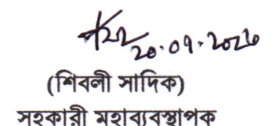 20.09.2026
(শিবলী সাদিক)
সহকারী মহাব্যবস্থাপক